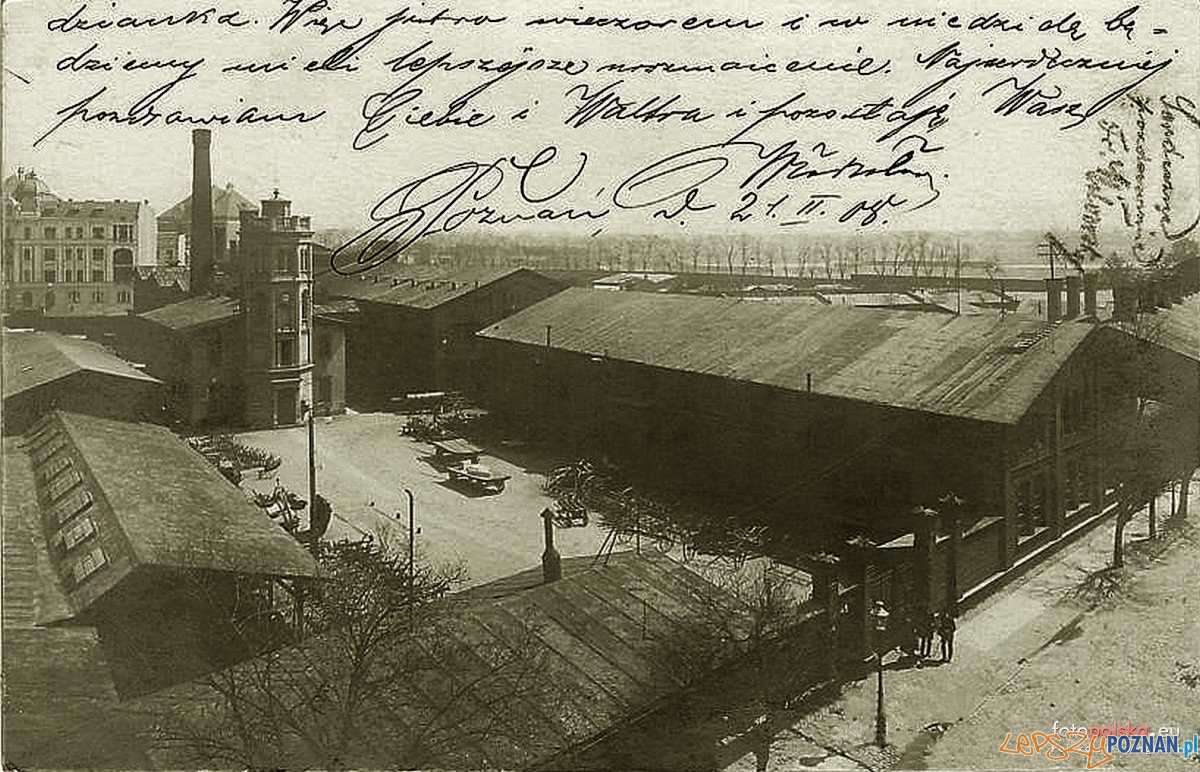 dzianka. Więc jutro wieczorem i w niedzielę bę-
dziemy mieli lepszejsze rozmaicenie. Najserdeczniej
pozdrawiam Ciebie i Waltra i pozostaję Wasz
Poznań, d. 21. II. 08.
fotopolska.eu
LEPSZYPOZNAN.pl